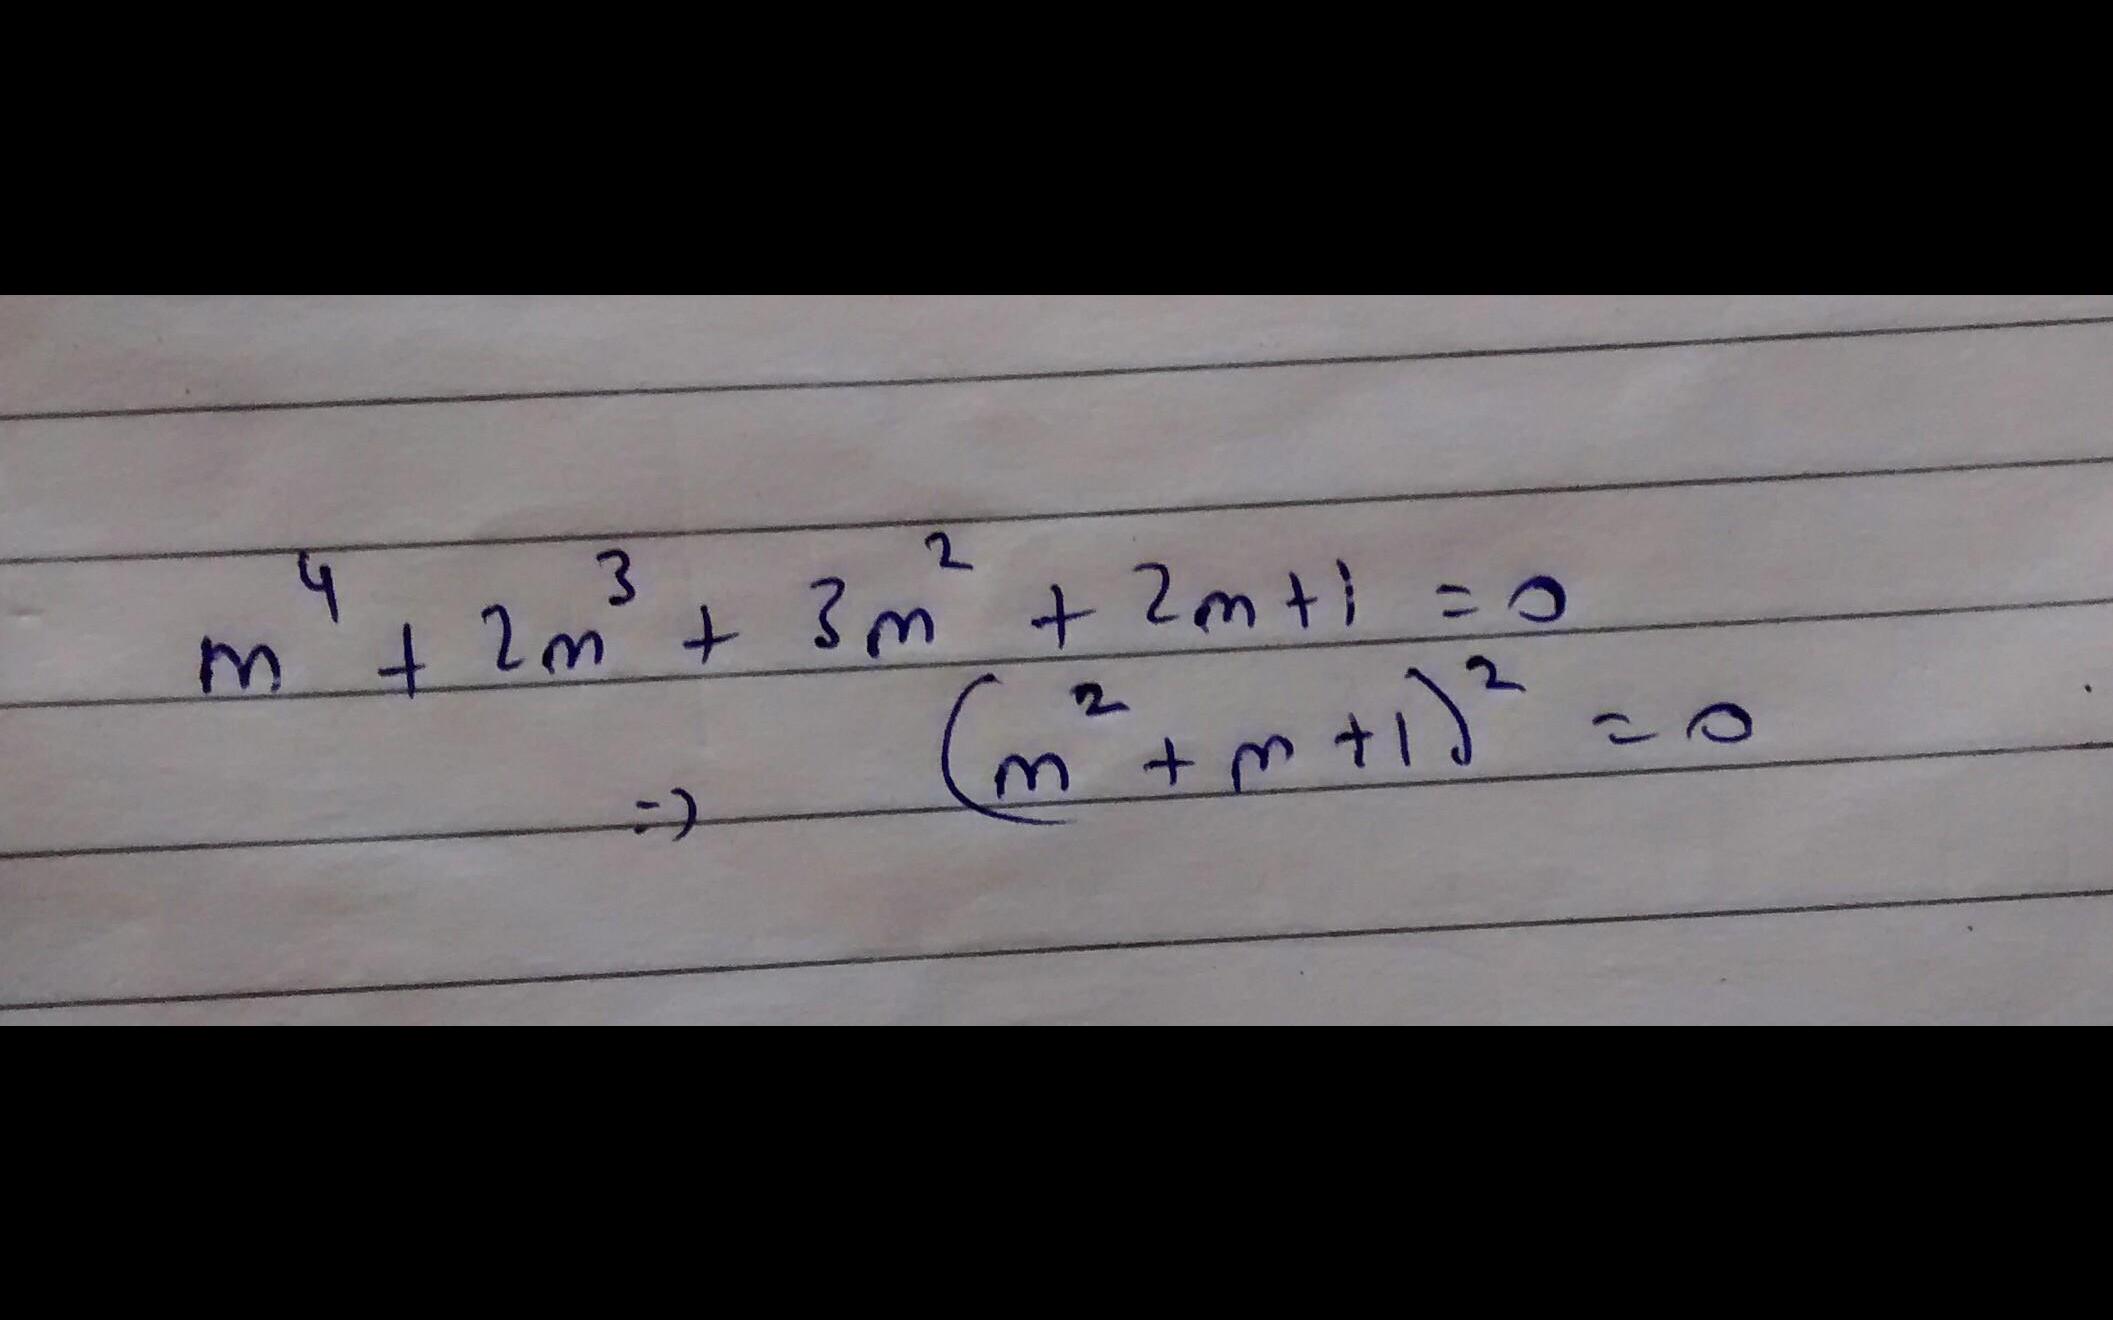 m⁴ + 2m³ + 3m² + 2m+1 = 0
=> (m² + m +1)² = 0